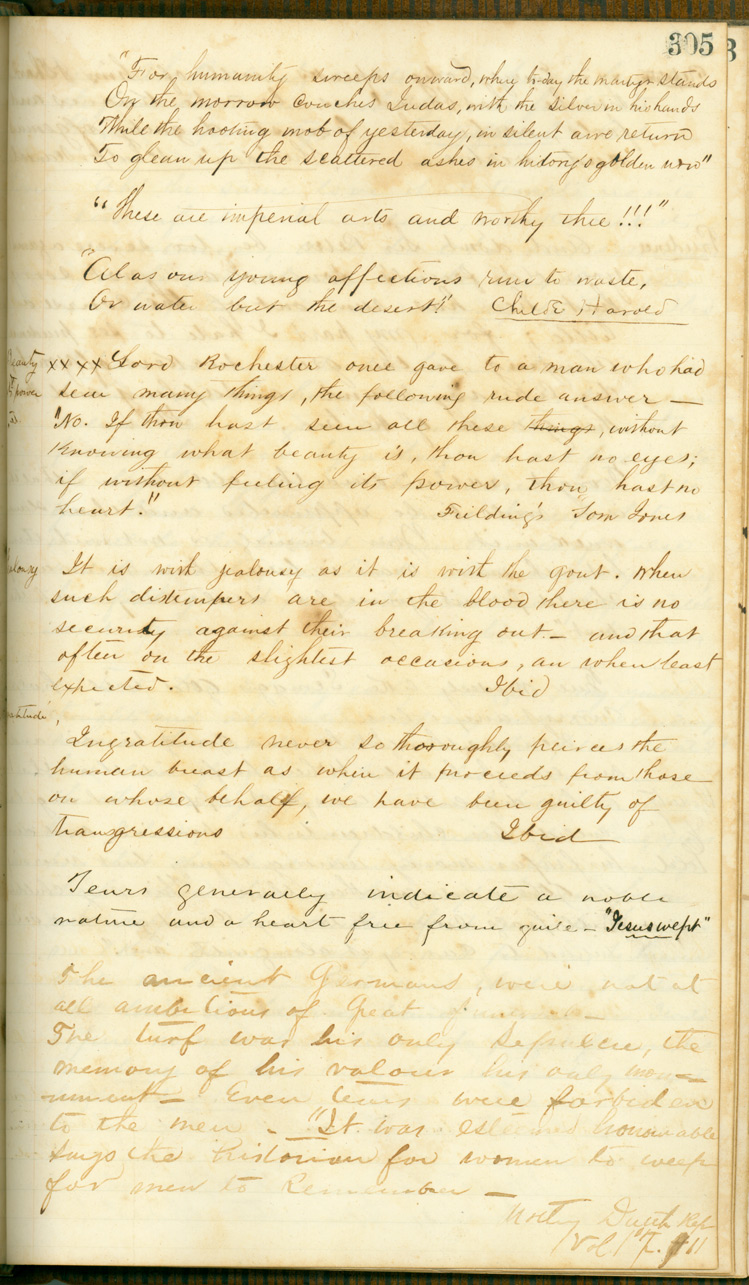 305
"For humanity sweeps onward, where today the martyr stands
On the morrow crouches Judas, with the silver in his hands
While the hooting mob of yesterday, in silent awe return
To glean up the scattered ashes in history's golden urn"
"These are imperial arts and worthy thee!!!"
"Alas our young affections run to waste,
Or water but the desert!" Childe Harold
xxxx Lord Rochester once gave to a man who had
seen many things, the following rude answer —
"No. If thou hast seen all these things, without
Knowing what beauty is, thou hast no eyes;
if without feeling its power, thou hast no
heart." Fielding's Tom Jones
It is with jealousy as it is with the gout. When
such distempers are in the blood there is no
security against their breaking out — and that
often on the slightest occasions, an when least
expected. Ibid
Ingratitude never so thoroughly peirces the
human breast as when it proceeds from those
on whose behalf, we have been guilty of
transgressions Ibid
Tears generally indicate a noble
nature and a heart free from guile — "Jesus wept"
The ancient Germans, were not at
all ambitious of great
The turf was his only Sepulcre, the
memory of his valour his only mon-
ument — Even tears were forbiden
to the men — "It was esteemed honourable
says the historian for women to weep
for men to Remember —
Dutch Rep
Vol. 1st P. 11